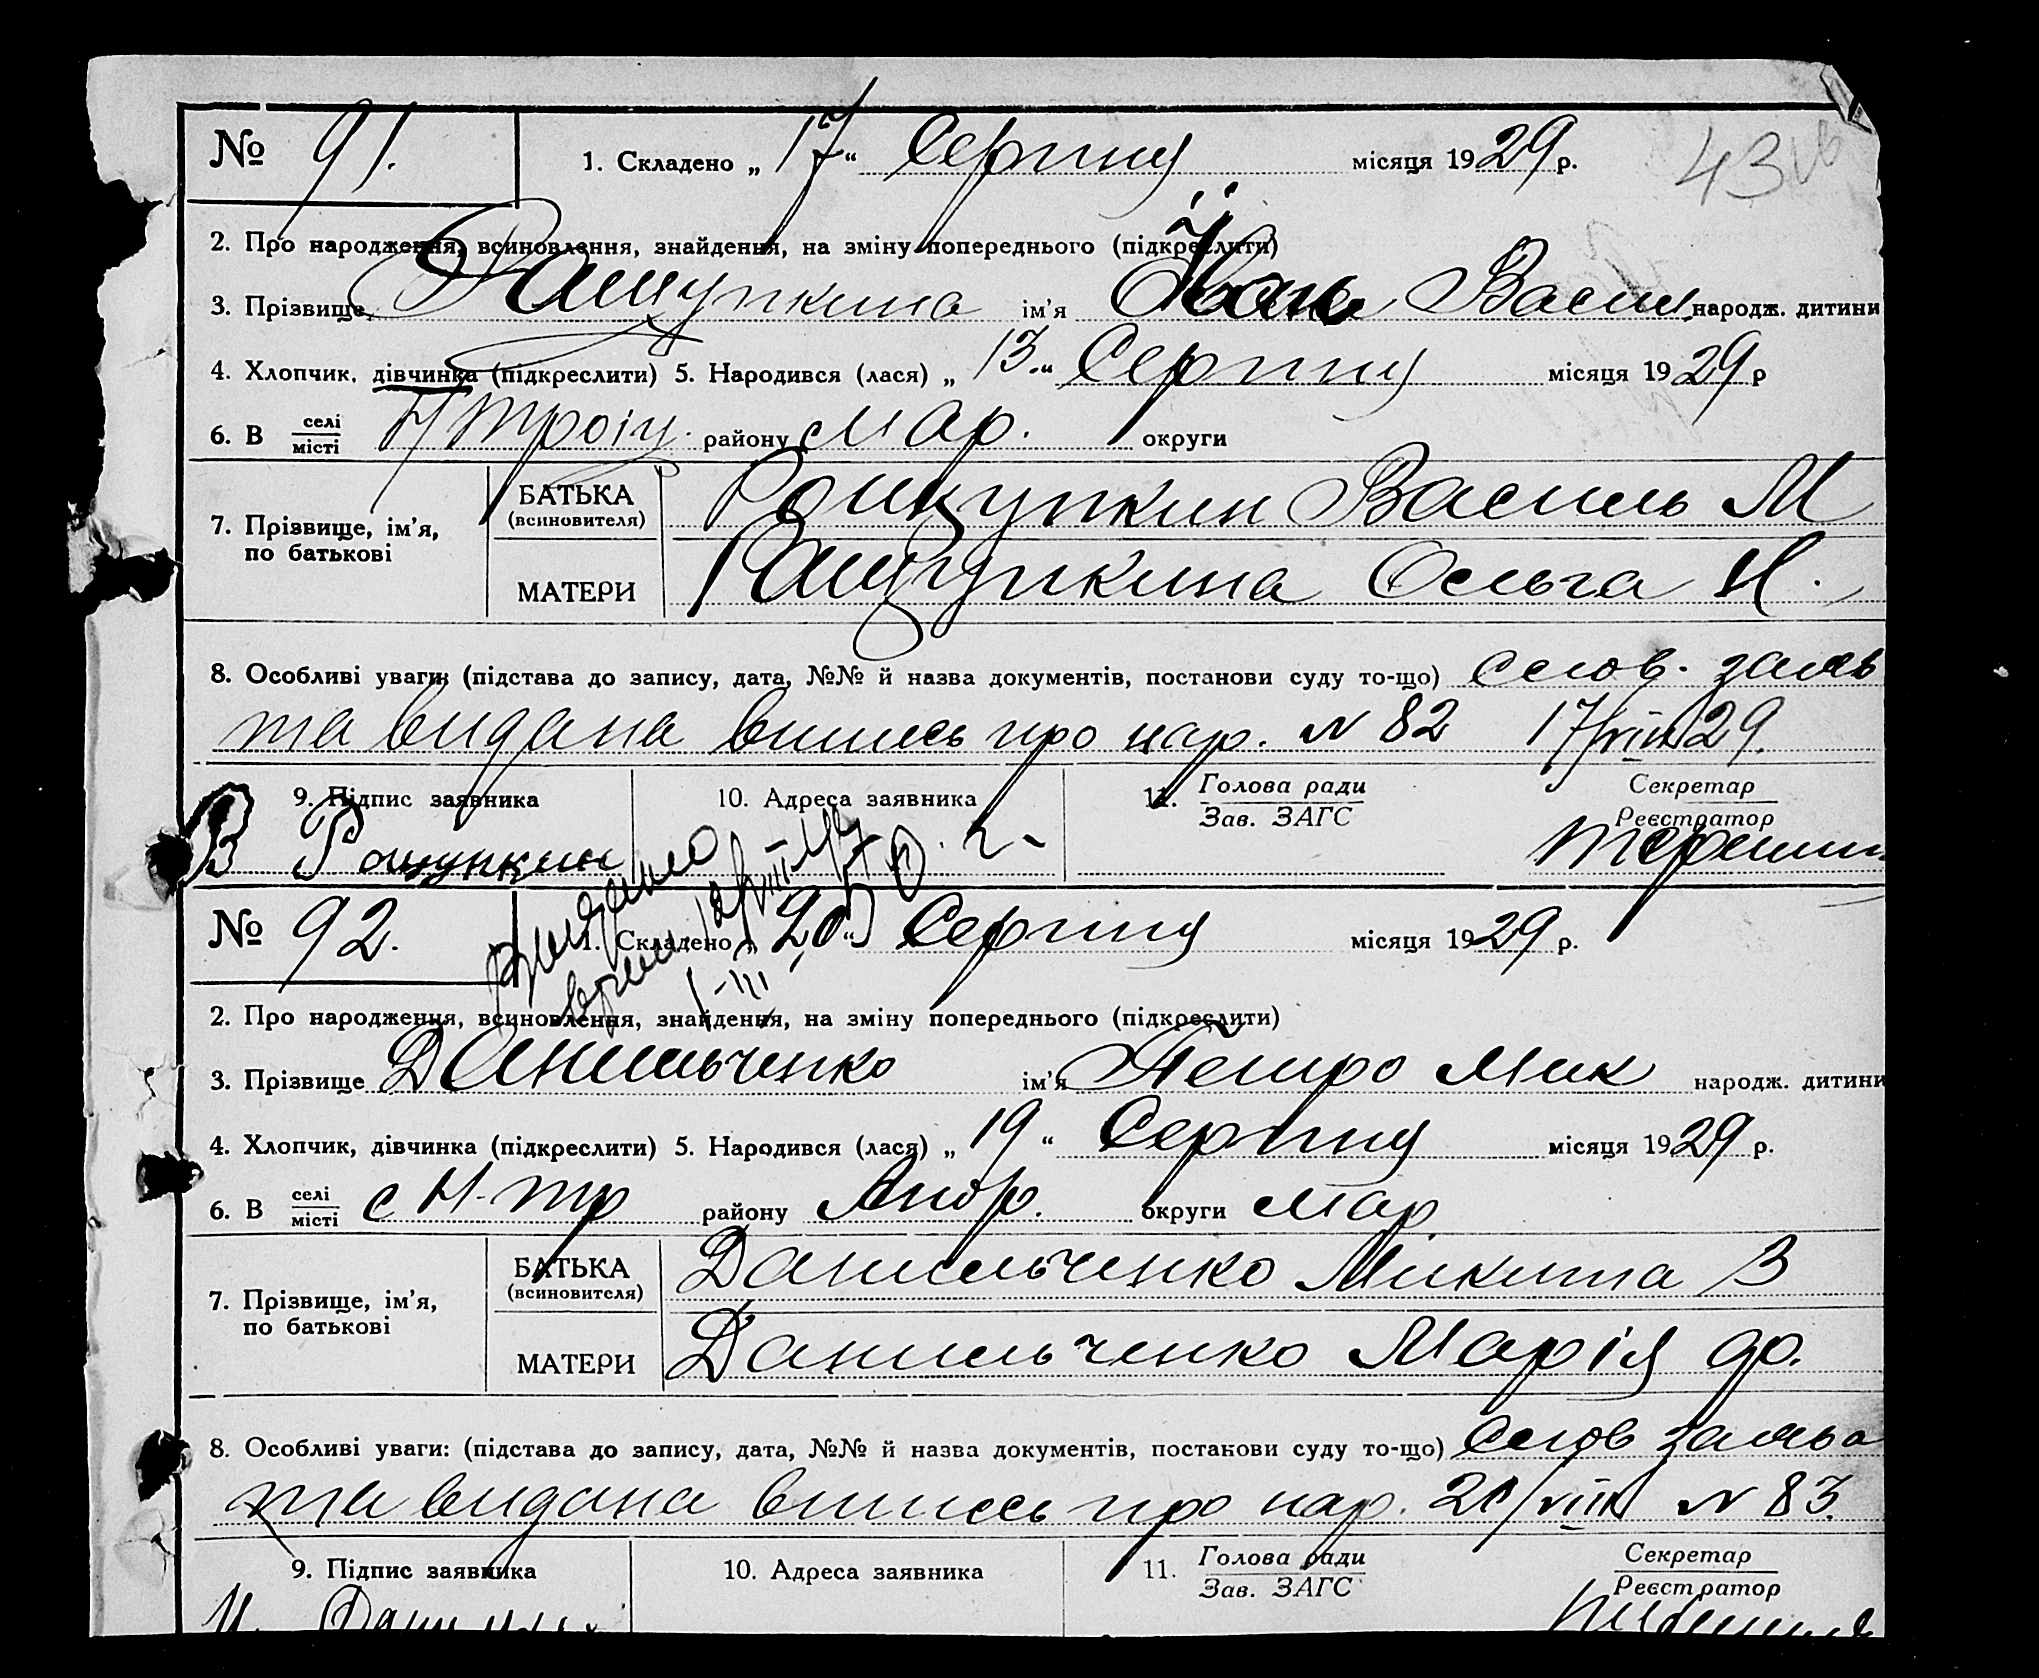 № 91. 1. Складено „17“ Серпня місяця 1929 р.
2. Про народження, всиновлення, знайдення, на зміну попереднього (підкреслити)
3. Прізвище Ращупкина ім'я Васил народж. дитини
4. Хлопчик, дівчинка (підкреслити) 5. Народився (лася) „13.“ Серпня місяця 1929 р
6. В селі місті Н Троіц. району Мар. округи
7. Прізвище, ім'я, по батькові
БАТЬКА (всиновителя) Рощупкин Василь М
МАТЕРИ Ращупкина Ольга Н.
8. Особливі уваги: (підстава до запису, дата, №№ й назва документів, постанови суду то-що) слов. заяв
та видана випись про нар. N 82 17/VIII 29.
9. Підпис заявника 10. Адреса заявника 11. Голова ради Зав. ЗАГС Секретар Реєстратор
В Рощупкин
№ 92. 1. Складено „20“ Серпня місяця 1929 р.
2. Про народження, всиновлення, знайдення, на зміну попереднього (підкреслити)
3. Прізвище Данильченко ім'я Петро Мик народж. дитини
4. Хлопчик, дівчинка (підкреслити) 5. Народився (лася) „19“ Серпня місяця 1929 р.
6. В селі місті с Н-Тр району округи Мар
7. Прізвище, ім'я, по батькові
БАТЬКА (всиновителя) Данильченко Микита В
МАТЕРИ Данильченко Марія Ф.
8. Особливі уваги: (підстава до запису, дата, №№ й назва документів, постанови суду то-що) слов заява
та видана випись про нар. 20/VIII N 83.
9. Підпис заявника 10. Адреса заявника 11. Голова ради Зав. ЗАГС Секретар Реєстратор